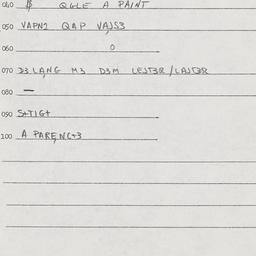 040 $ QGLE A PAINT
050 VAPN2 QAP VAJSS3
060 o
070 D3 LANG M3 D3M LEJT3R / LAJT3R
080 —
090 S+TIG+
100 A PARENC+3